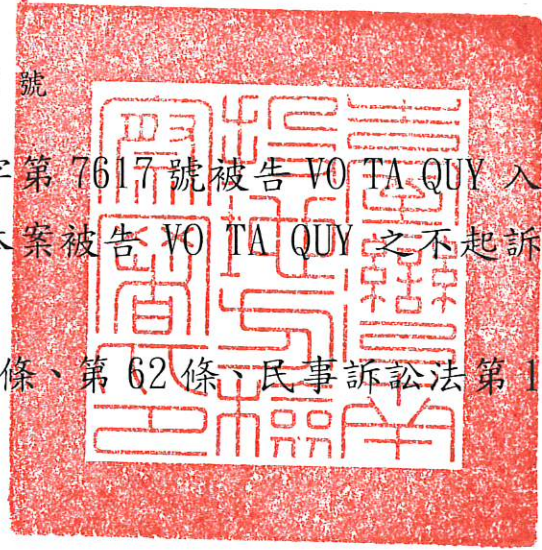 號
字第 7617 號被告 VO TA QUY 入
本案被告 VO TA QUY 之不起訴
條、第 62 條、民事訴訟法第 1